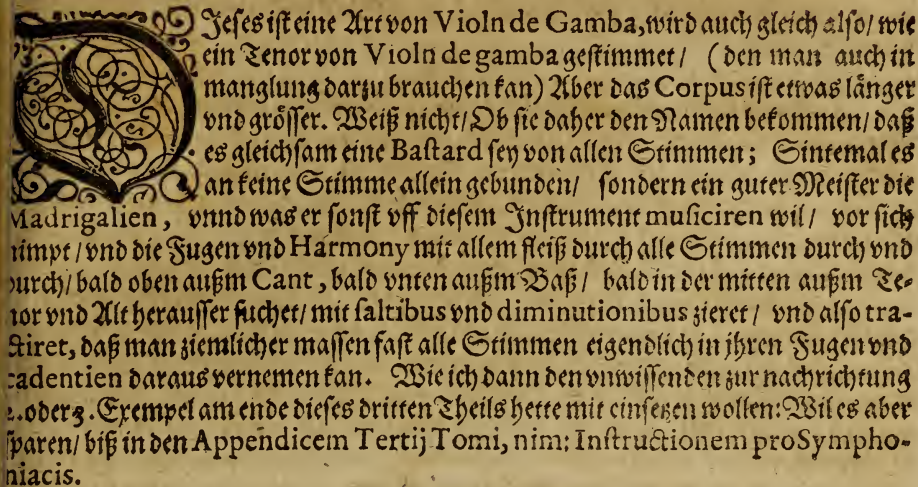 DIeses ist eine Art von Violn de Gamba, wird auch gleich also/ wie
ein Tenor von Violn de gamba gestimmet/ (den man auch in
manglung darzu brauchen kan) Aber das Corpus ist etwas länger
vnd grösser. Weiß nicht/ Ob sie daher den Namen bekommen/ daß
es gleichsam eine Bastard sey von allen Stimmen; Sintemal es
an keine Stimme allein gebunden/ sondern ein guter Meister die
Madrigalien, vnnd was er sonst vff diesem Instrument musiciren wil/ vor sich
nimpt/ vnd die Fugen vnd Harmony mit allem fleiß durch alle Stimmen durch vnd
durch/ bald oben außm Cant, bald vnten außm Baß/ bald in der mitten außm Te-
nor vnd Alt herausser suchet/ mit saltibus vnd diminutionibus zieret/ vnd also tra-
ctiret, daß man ziemlicher massen fast alle Stimmen eigendlich in jhren Fugen vnd
cadentien daraus vernemen kan. Wie ich dann den vnwissenden zur nachrichtung
2. oder 3. Exempel am ende dieses dritten Theils hette mit einsetzen wollen: Wil es aber
sparen/ biß in den Appendicem Tertij Tomi, nim: Instructionem pro Sympho-
niacis.